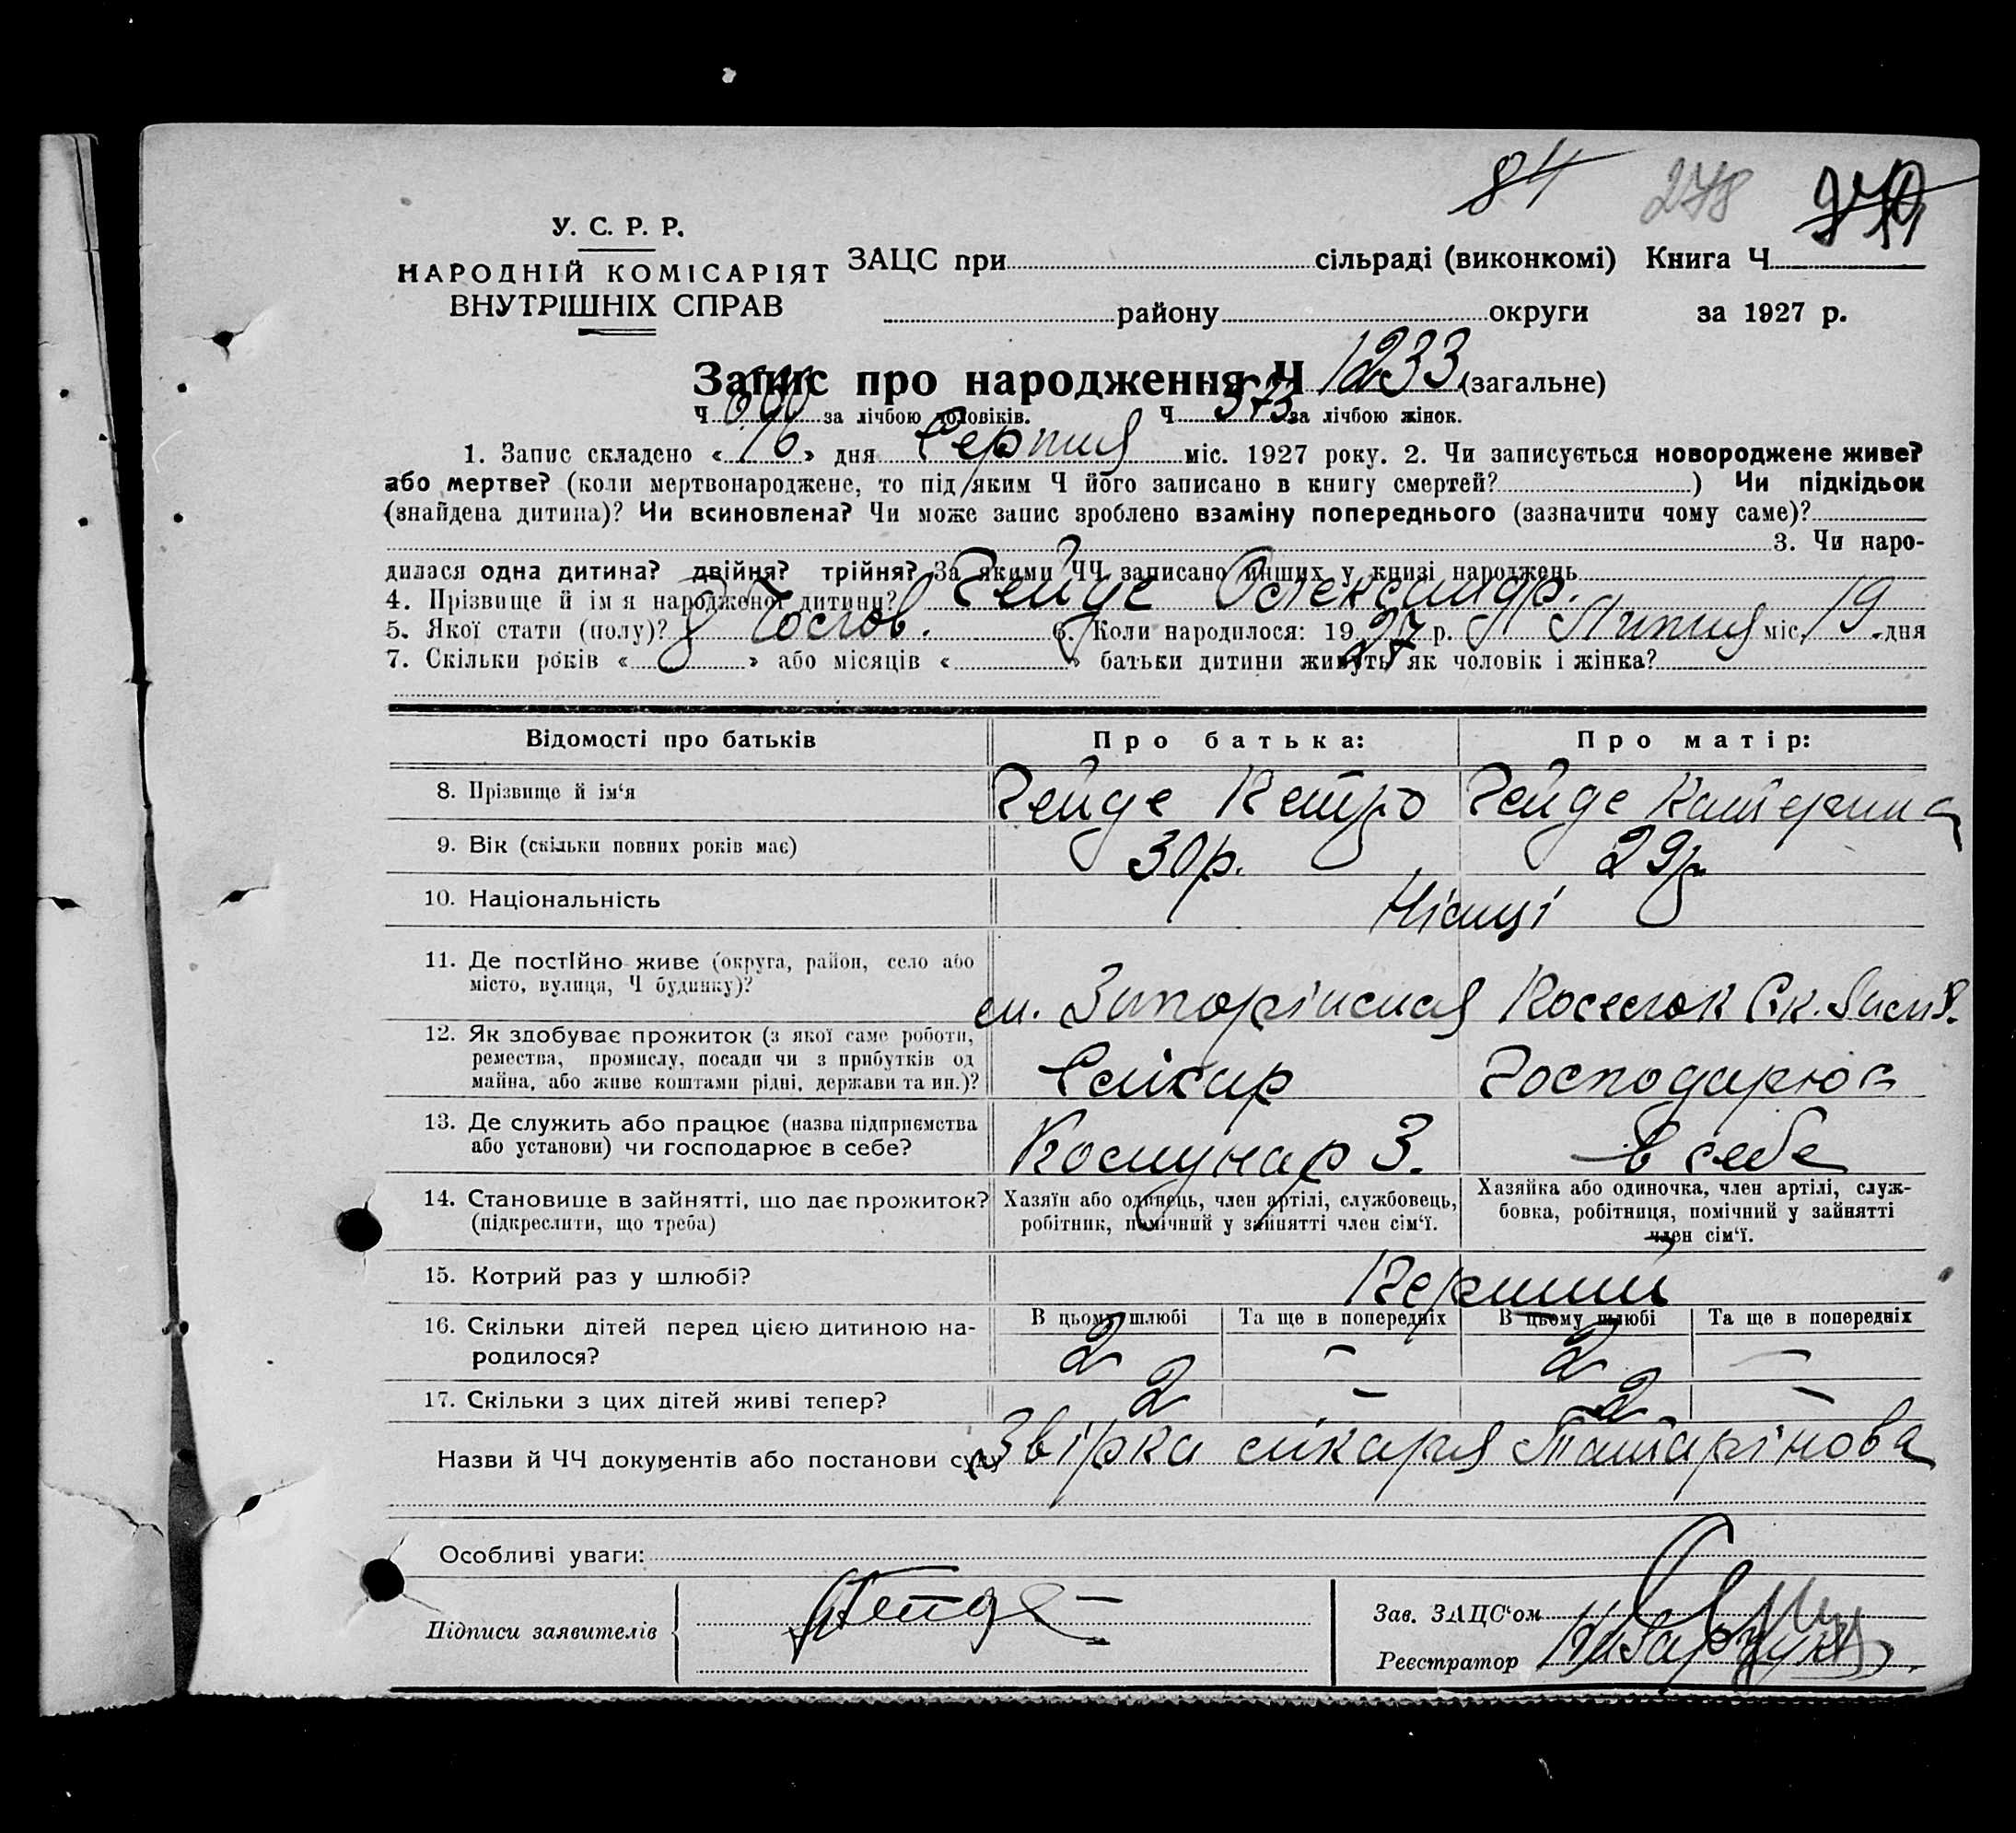 84 278
У. С. Р. Р.
НАРОДНІЙ КОМІСАРІЯТ
ВНУТРІШНІХ СПРАВ
ЗАЦС при сільраді (виконкомі) Книга Ч
району округи за 1927 р.
Запис про народження Ч 1233 (загальне)
Ч за лічбою чоловіків. Ч 573 за лічбою жінок.
1. Запис складено « 16 » дня Серпня міс. 1927 року. 2. Чи записується новороджене живе?
або мертве? (коли мертвонароджене, то під яким Ч його записано в книгу смертей? ) Чи підкідьок
(знайдена дитина)? Чи всиновлена? Чи може запис зроблено взаміну попереднього (зазначити чому саме)?
3. Чи наро-
дилася одна дитина? двійня? трійня? За якими ЧЧ записано инших у книзі народжень
4. Прізвище й ім я народженої дитини? Гейде Олександр.
5. Якої стати (полу)? Чолов. 6. Коли народилося: 1927 р. Липня міс. 19 дня
7. Скільки років « 8 » або місяців « » батьки дитини живуть як чоловік і жінка?
Відомості про батьків Про батька: Про матір:
8. Прізвище й ім‘я Гейде Петро Гейде Катерина
9. Вік (скільки повних років має) 30р. 29р.
10. Національність Німці
11. Де постійно живе (округа, район, село або
місто, вулиця, Ч будинку)? м. Запоріжжя Поселок
12. Як здобуває прожиток (з якої саме роботи,
ремества, промислу, посади чи з прибутків од
майна, або живе коштами рідні, держави та ин.)? Слюсар Господарює
13. Де служить або працює (назва підприємства
або установи) чи господарює в себе? Комунар З. в себе
14. Становище в зайнятті, що дає прожиток?
(підкреслити, що треба)
Хазяїн або одинець, член артілі, службовець,
робітник, помічний у зайнятті член сім‘ї.
Хазяйка або одиночка, член артілі, служ-
бовка, робітниця, помічний у зайнятті
член сім‘ї.
15. Котрий раз у шлюбі? Перший
В цьому шлюбі Та ще в попередніх В цьому шлюбі Та ще в попередніх
16. Скільки дітей перед цією дитиною на-
родилося? 2 – 2 –
17. Скільки з цих дітей живі тепер? 2 – 2 –
Назви й ЧЧ документів або постанови суду Звірка лікаря Татарінова
Особливі уваги:
Підписи заявителів Гейде
Зав. ЗАЦС‘ом
Реєстратор